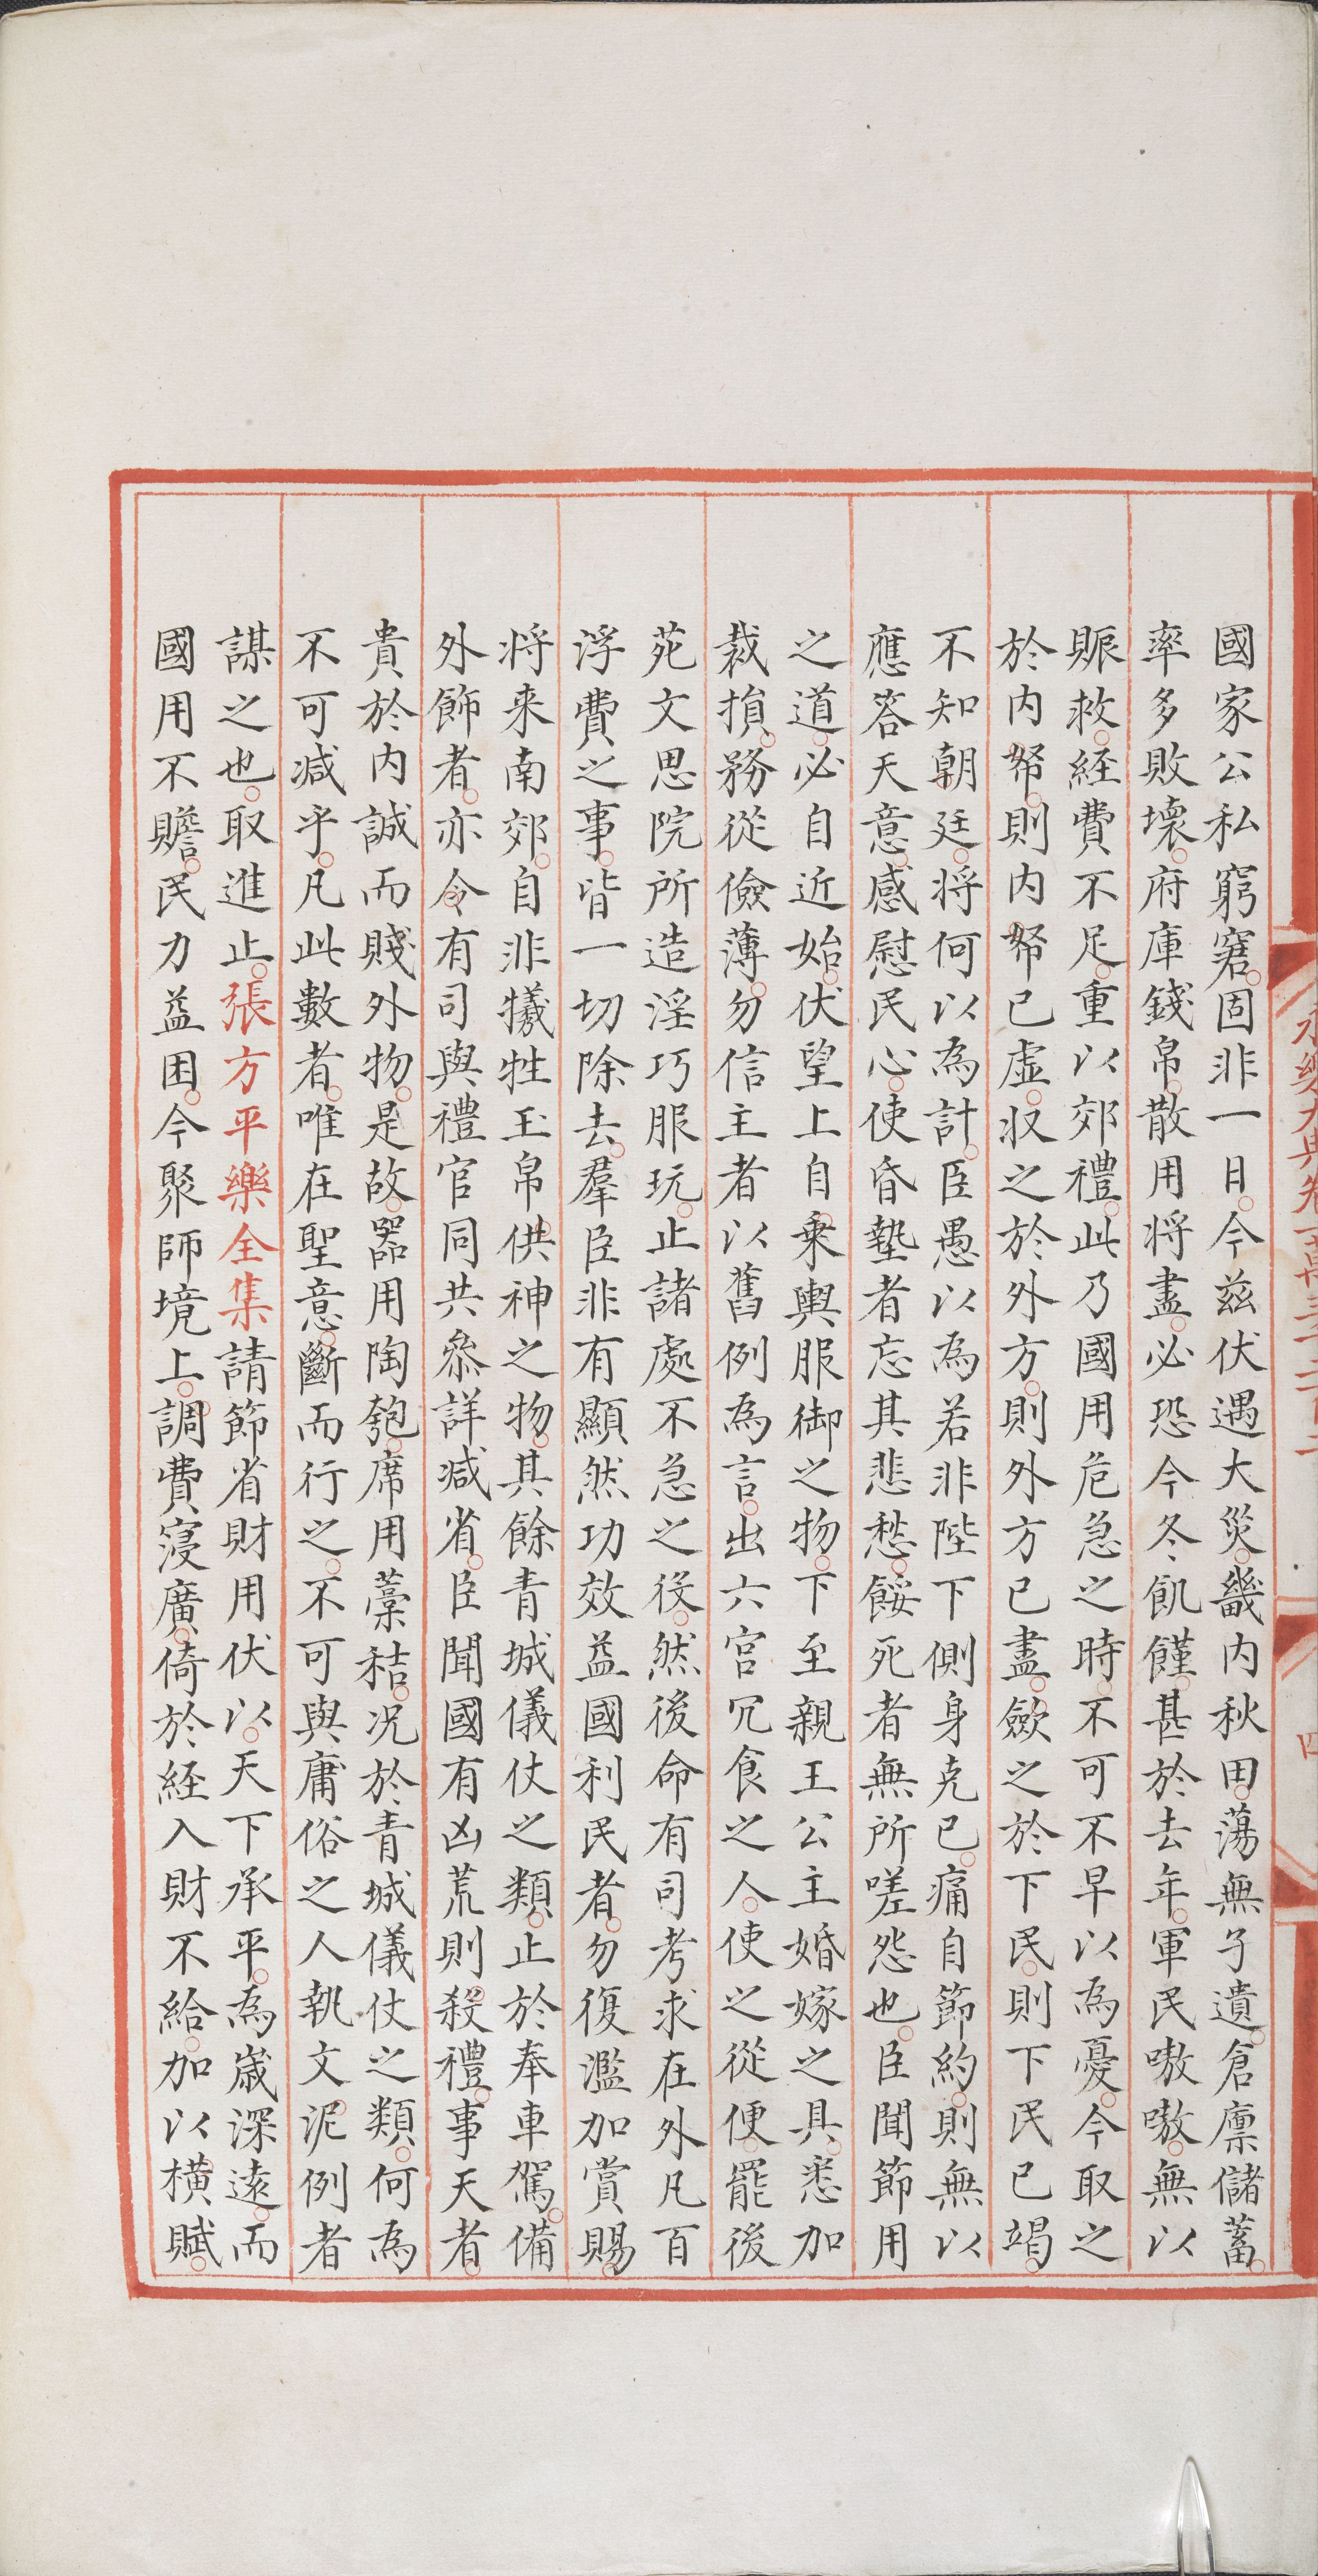 國家公私窮窘固非一日今茲伏遇大災畿内秋田蕩無孑遺倉廩儲蓄
率多敗壞府庫錢帛散用将盡必恐今冬飢饉甚於去年軍民嗷嗷無以
賑救經費不足重以郊禮此乃國用危急之時不可不早以為憂今取之
於内帑則内帑已虛収之於外方則外方已盡斂之於下民則下民已竭
不知朝廷将何以為計臣愚以為若非陛下側身克已痛自節約則無以
應答天意感慰民心使昏墊者忘其悲愁餒死者無所嗟怨也臣聞節用
之道必自近始伏望上自乘輿服御之物下至親王公主婚嫁之具悉加
裁損務從儉薄勿信主者以舊例為言出六宫冗食之人使之從便罷後
苑文思院所造淫巧服玩止諸處不急之役然後命有司考求在外凡百
浮費之事皆一切除去羣臣非有顯然功效益國利民者勿復濫加賞賜
将来南郊自非犧牲玉帛供神之物其餘青城儀仗之類止於奉車駕備
外飾者亦令有司與禮官同共叅詳减省臣聞國有凶荒則殺禮事天者
貴於内誠而賤外物是故器用陶匏席用藁秸况於青城儀仗之類何為
不可减乎凡此數者唯在聖意斷而行之不可與庸俗之人執文泥例者
謀之也取進止張方平樂全集請節省財用伏以天下承平為歲深遠而
國用不贍民力益困今聚師境上調費寖廣倚於経入財不給加以横賦
永樂大典卷
四